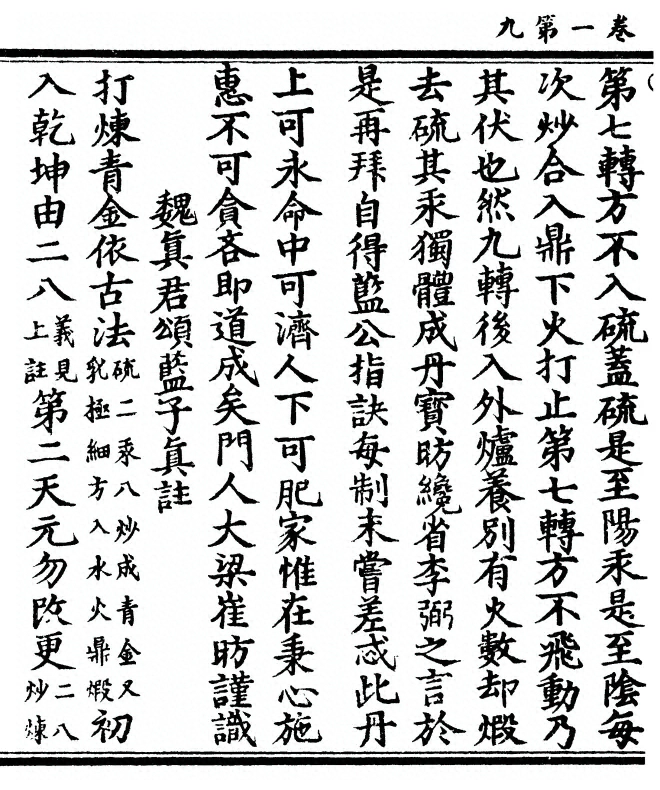 卷一第九
第七轉方不入硫蓋硫是至陽汞是至陰每
次炒合入鼎下火打止第七轉方不飛動乃
其伏也然九轉後入外爐養别有火數却煅
去硫其汞獨體成丹寶昉纔省李弼之言於
是再拜自得藍公指訣每制未嘗差忒此丹
上可永命中可濟人下可肥家惟在秉心施
惠不可貪吝即道成矣門人大梁崔昉謹識
魏真君頌藍子真註
打煉青金依古法硫二汞八炒成青金又乳極細方入水火鼎煅初
入乾坤由二八義見上註第二天元勿改更二八炒煉